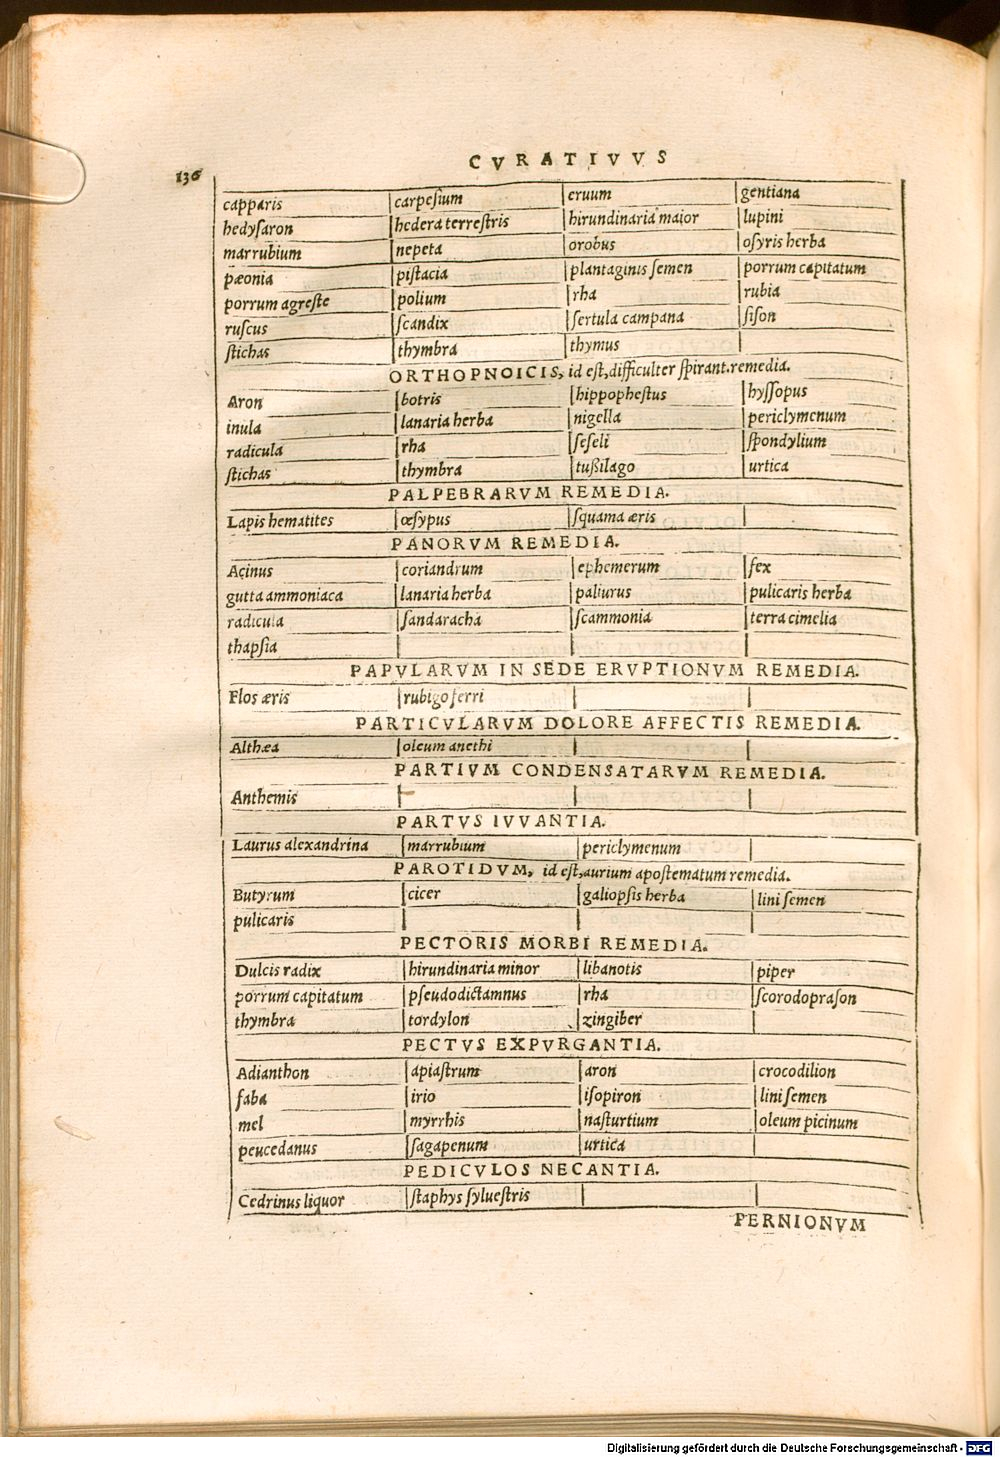 136
CVRATIVVS
capparis carpeſium eruum gentiana
hedyſaron hedera terreſtris hirundinaria maior lupini
marrubium nepeta orobus oſyris herba
pæonia piſtacia plantaginis ſemen porrum capitatum
porrum agreſte polium rha rubia
ruſcus ſcandix ſertula campana ſiſon
ſtichas thymbra thymus
ORTHOPNOICIS, id eſt, difficulter ſpirant. remedia.
Aron botris hippopheſtus hyſſopus
inula lanaria herba nigella periclymenum
radicula rha ſeſeli ſpondylium
ſtichas thymbra tußilago urtica
PALPEBRARVM REMEDIA.
Lapis hematites œſypus ſquama æris
PANORVM REMEDIA.
Acinus coriandrum ephemerum fex
gutta ammoniaca lanaria herba paliurus pulicaris herba
radicula ſandaracha ſcammonia terra cimelia
thapſia
PAPVLARVM IN SEDE ERVPTIONVM REMEDIA.
Flos æris rubigo ferri
PARTICVLARVM DOLORE AFFECTIS REMEDIA.
Althæa oleum anethi
PARTIVM CONDENSATARVM REMEDIA.
Anthemis
PARTVS IVVANTIA.
Laurus alexandrina marrubium periclymenum
PAROTIDVM, id eſt, aurium apoſtematum remedia.
Butyrum cicer galiopſis herba lini ſemen
pulicaris
PECTORIS MORBI REMEDIA.
Dulcis radix hirundinaria minor libanotis piper
porrum capitatum pſeudodictamnus rha ſcorodopraſon
thymbra tordylon zingiber
PECTVS EXPVRGANTIA.
Adianthon apiaſtrum aron crocodilion
faba irio iſopiron lini ſemen
mel myrrhis naſturtium oleum picinum
peucedanus ſagapenum urtica
PEDICVLOS NECANTIA.
Cedrinus liquor ſtaphys ſylueſtris
PERNIONVM
Digitalisierung gefördert durch die Deutsche Forschungsgemeinschaft - DFG